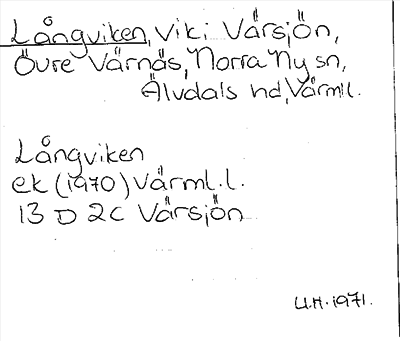 Långviken, vik i Vårsjön,
Övre Värnäs, Norra Ny sn,
Älvdals hd, Värml.
Långviken
ek (1970) Värml. l.
13 D 2c Vårsjön
U.H. 1971.